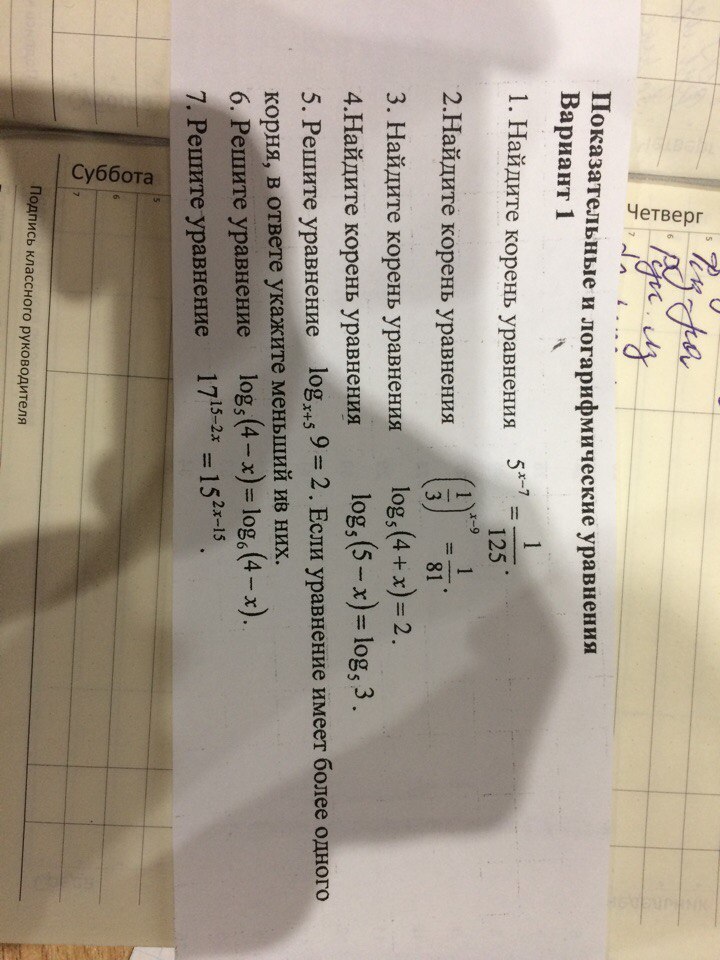 Показательные и логарифмические уравнения
Вариант 1
1. Найдите корень уравнения 5^{x−7} = 1/125.
2.Найдите корень уравнения (1/3)^{x−9} = 1/81.
3. Найдите корень уравнения log₅(4 + x) = 2.
4.Найдите корень уравнения log₅(5 − x) = log₅ 3.
5. Решите уравнение log_{x+5} 9 = 2. Если уравнение имеет более одного
корня, в ответе укажите меньший из них.
6. Решите уравнение log₅(4 − x) = log₆(4 − x).
7. Решите уравнение 17^{15−2x} = 15^{2x−15}.
Четверг
5
6
7
Суббота
5
6
7
Подпись классного руководителя